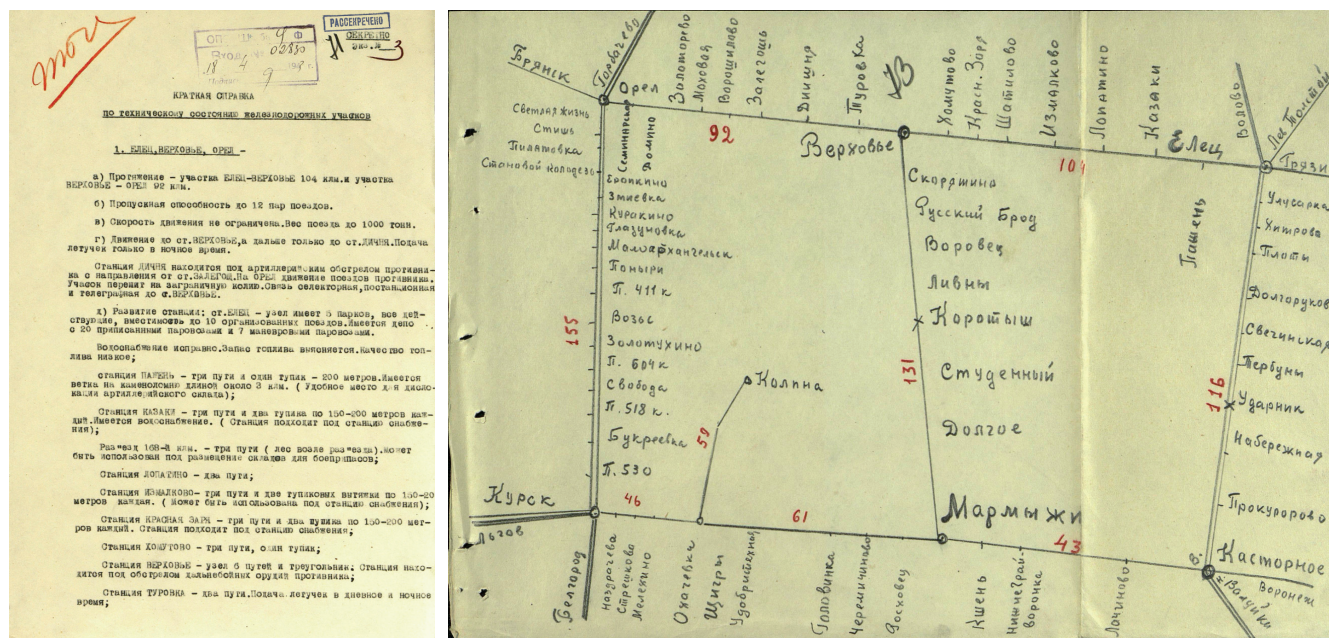 РАССЕКРЕЧЕНО
СЕКРЕТНО
экз. № 3
Вход. № 02830
КРАТКАЯ СПРАВКА
по техническому состоянию железнодорожных участков
1. ЕЛЕЦ, ВЕРХОВЬЕ, ОРЕЛ –
а) Протяжение – участка ЕЛЕЦ-ВЕРХОВЬЕ 104 клм.и участка
ВЕРХОВЬЕ – ОРЕЛ 92 клм.
б) Пропускная способность до 12 пар поездов.
в) Скорость движения не ограничена.Вес поезда до 1000 тонн.
г) Движение до ст.ВЕРХОВЬЕ,а дальше только до ст.ДИЧНЯ.Подача
летучек только в ночное время.
Станция ДИЧНЯ находится под артиллерийским обстрелом противни-
ка с направления от ст.ЗАЛЕГОЩ.На ОРЕЛ движение поездов противника.
Участок перешит на заграничную колию.Связь селекторная,постанционная
и телеграфная до ст.ВЕРХОВЬЕ.
д) Развитие станции: ст.ЕЛЕЦ – узел имеет 5 парков, все дей-
ствующие, вместимость до 10 организованных поездов.Имеется депо
с 20 приписанными паровозами и 7 маневровыми паровозами.
Водоснабжение исправно.Запас топлива выясняется.Качество топ-
лива низкое;
станция ПАЖЕНЬ – три пути и один тупик – 200 метров.Имеется
ветка на каменоломню длиной около 3 клм. ( Удобное место для дисло-
кации артиллерийского склада);
Станция КАЗАКИ – три пути и два тупика по 150-200 метров каж-
дый.Имеется водоснабжение. ( Станция подходит под станцию снабже-
ния);
Раз"езд 168-й клм. – три пути ( лес возле раз"езда).может
быть использован под размещение складов для боеприпасов;
Станция ЛОПАТИНО – два пути;
Станция ИЗМАЛКОВО- три пути и две тупиковых вытяжки по 150-20
метров каждая. ( Может быть использована под станцию снабжения);
Станция КРАСНАЯ ЗАРЯ – три пути и два тупика по 150-200 мет-
ров каждый. Станция подходит под станцию снабжения;
Станция ХОМУТОВО – три пути, один тупик;
Станция ВЕРХОВЬЕ – узел 6 путей и треугольник: Станция нахо-
дится под обстрелом дальнебойных орудий противника;
Станция ТУРОВКА – два пути.Подача летучек в дневное и ночное
время;
Брянск
Горбачево
Орел
Золоторево
Моховая
Ворошилово
Залегощь
Дичня
Туровка
Верховье
Хомутово
Красн. Заря
Шатилово
Измалково
Лопатино
Казаки
Елец
Волово
Лев Толстой
Грязи
92
104
Светлая жизнь
Стишь
Пилатовка
Становой колодезь
Семинарская
Домнино
Еропкино
Змиевка
Куракино
Глазуновка
Малоархангельск
Поныри
П. 411 к
Возы
Золотухино
П. 504 к
Свобода
П. 518 к.
Букреевка
П. 530
155
Скоряшина
Русский Брод
Воровец
Ливны
Коротыш
Студенный
Долгое
131
Мармыжи
Колпна
59
Пажень
Улусарка
Хитрово
Плоты
Долгоруково
Свечинская
Тербуны
Ударник
Набережная
Прокуророво
116
Касторное
В.
Воронеж
Валуйки
Курск
Льгов
Белгород
46
61
43
Ноздрачево
Стрешково
Мелехино
Охочевка
Щигры
Удобрительная
Головинка
Черемисиново
Расховец
Кшень
Нижнедевицк
Лачиново